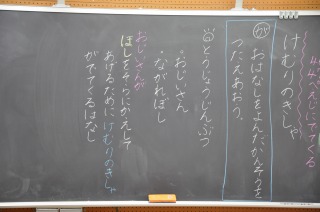 44ページにする
けむりのきしゃ
か
おはなしをよんだかんそうを
つたえあおう。
とうじょうじんぶつ
・おじいさん
・ながれぼし
おじいさんが
ほしをそらにかえして
あげるためにけむりのきしゃ
がでてくるはなし